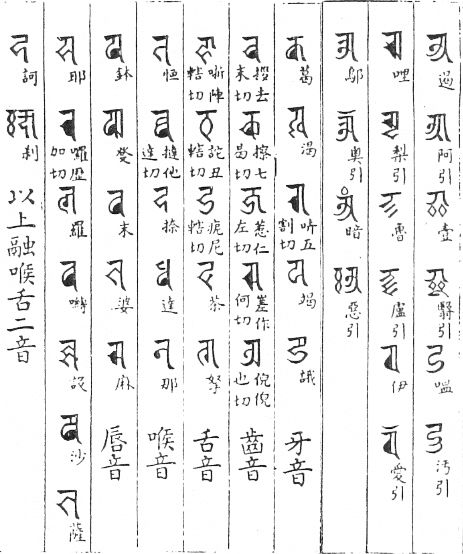 𑖀 遏 𑖁 阿引 𑖂 壹 𑖃 翳引 𑖄 嗢 𑖅 汚引
𑖆 哩 𑖇 梨引 𑖈 魯 𑖉 盧引 𑖊 伊 𑖋 愛引
𑖌 鄔 𑖍 奧引 𑖀𑖽 暗 𑖀𑖾 惡引
𑖎 葛 𑖏 渴 𑖐 五割切 𑖑 竭 𑖒 誐 牙音
𑖓 拶去末切 𑖔 擦七曷切 𑖕 惹仁左切 𑖖 嵯作何切 𑖗 倪倪也切 齒音
𑖘 哳陣轄切 𑖙 詑丑轄切 𑖚 痆尼轄切 𑖛 茶 𑖜 拏 舌音
𑖝 怛 𑖞 撻他達切 𑖟 捺 𑖠 達 𑖡 那 喉音
𑖢 鉢 𑖣 發 𑖤 末 𑖥 婆 𑖦 麻 唇音
𑖧 耶 𑖨 囉歷加切 𑖩 羅 𑖪 嚩 𑖫 設 𑖬 沙 𑖭 薩
𑖮 訶 𑖎𑖿𑖬 刹 以上融喉舌二音